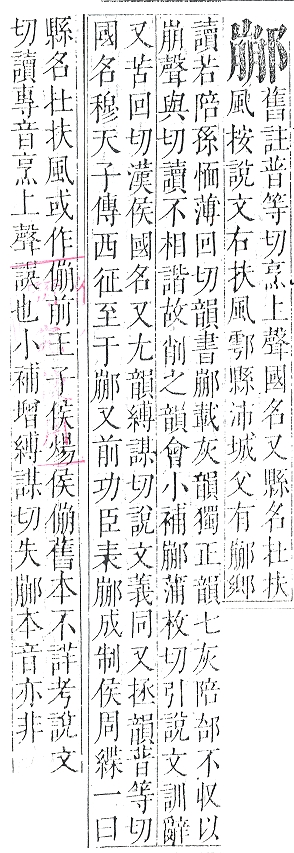 䣙
舊註普等切烹上聲國名又縣名在扶
風按說文右扶風鄠縣沛城父有䣙鄉
讀若陪孫愐薄回切韻書䣙載灰韻獨正韻七灰陪部不収以
崩聲與切讀不相諧故削之韻會小補䣙蒲枚切引說文訓辭
又苦回切漢侯國名又尤韻縛謀切說文義同又拯韻普等切
國名穆天子傳西征至于䣙又前功臣表䣙成制侯周緤一曰
縣名在扶風或作傰前王子侯煬侯傰舊本不詳考說文
切讀專音烹上聲誤也小補增縛謀切失䣙本音亦非